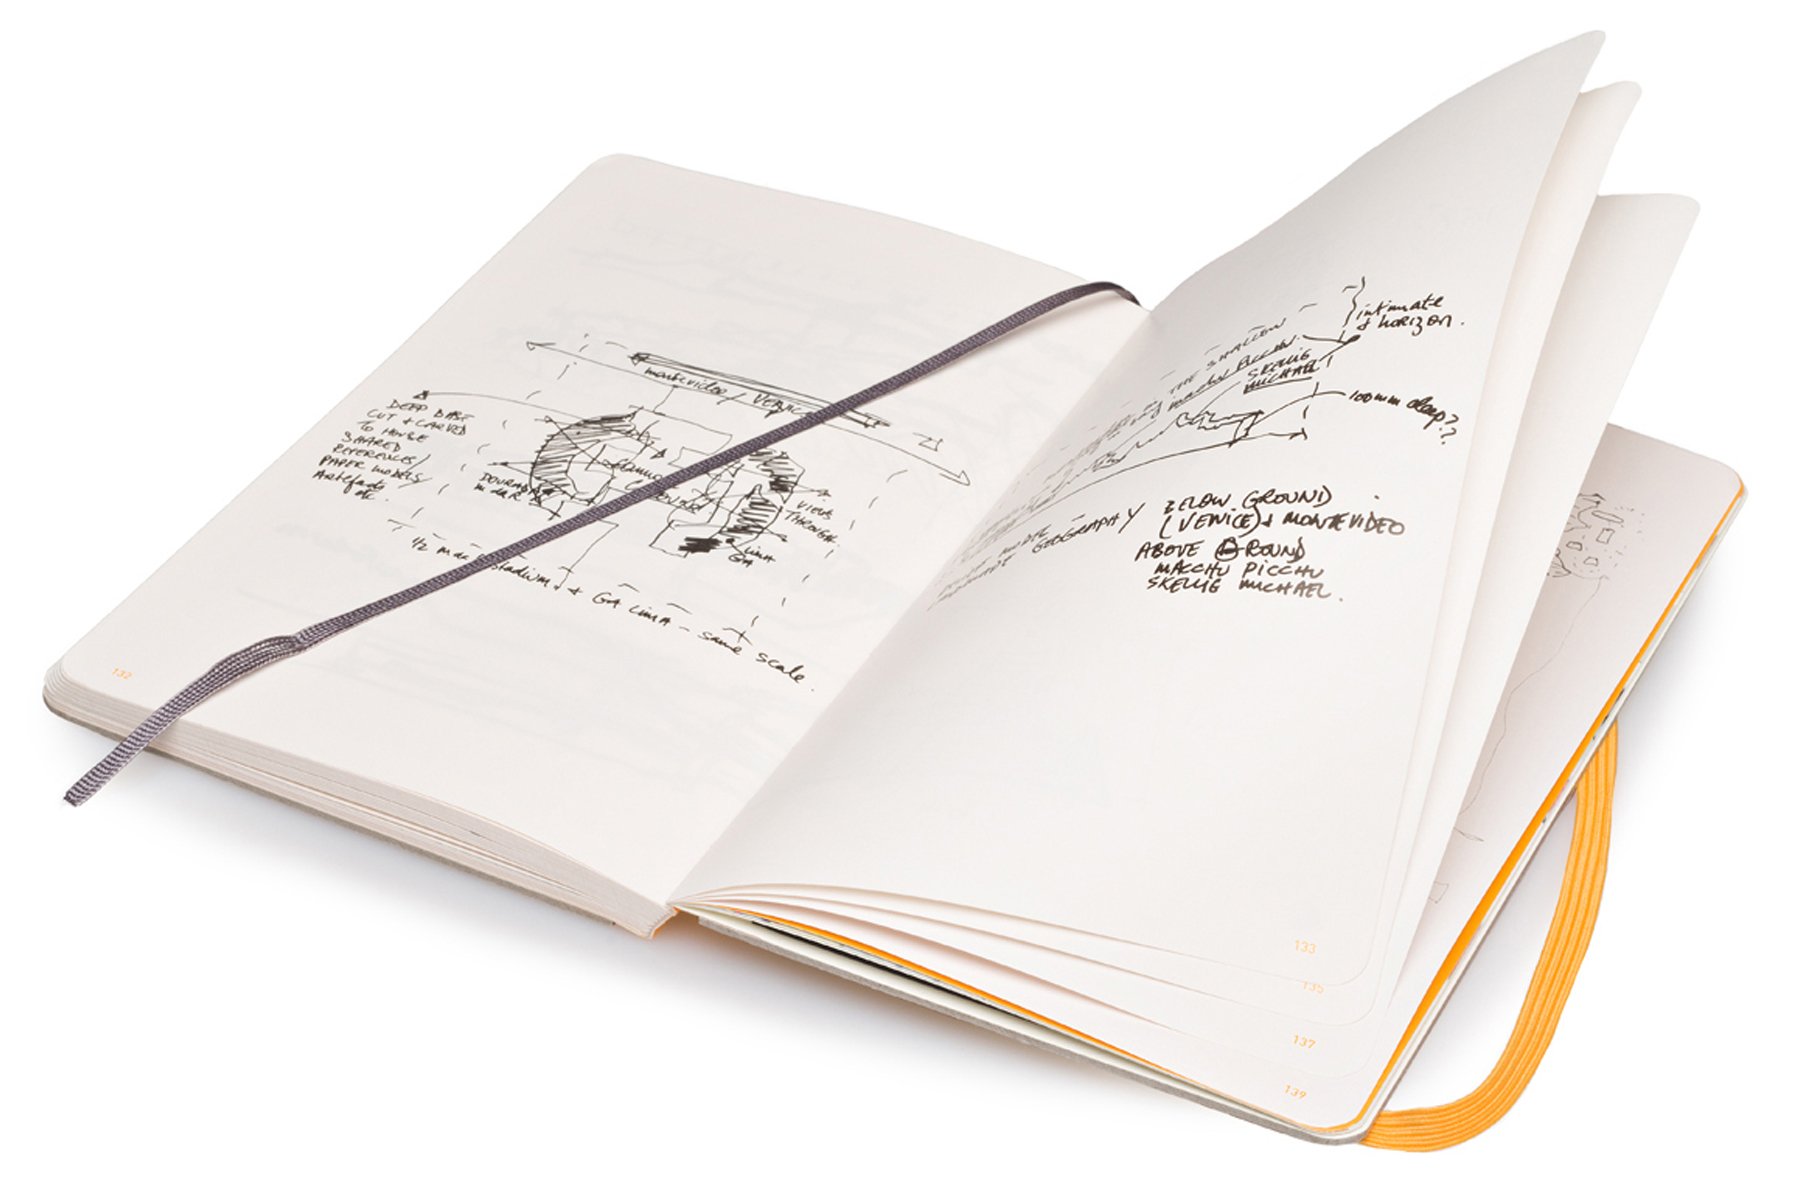 montevideo / VENICE
DEEP BASE
CUT + CARVED
TO HOUSE
SHARED
REFERENCES/
PAPER MODELS/
Artefacts
etc.
VIEWS
THROUGH
LIMA
GA
1/2
stadium + GA LIMA - same scale.
132
intimate
+ horizon.
THE SHALLOW
SKELLIG
MICHAEL
100mm deep??
GEOGRAPHY
BELOW GROUND
(VENICE) + MONTEVIDEO
ABOVE GROUND
MACCHU PICCHU
SKELLIG MICHAEL.
133
135
137
139